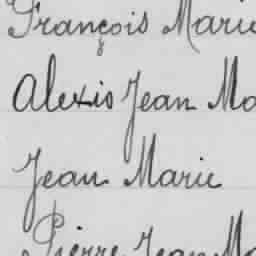 François Marie
Alexis Jean Ma
Jean Marie
Pierre Jean Ma